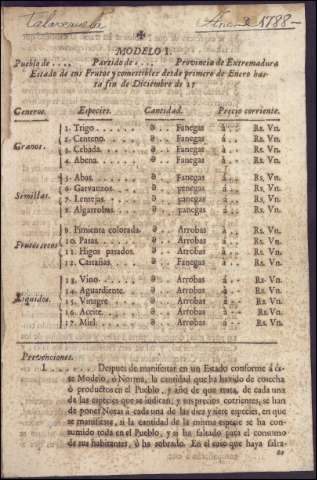 Talarrubias Año de 1788
✠
MODELO I.
Pueblo de .... Partido de .... Provincia de Extremadura
Estado de sus Frutos y comestibles desde primero de Enero has-
ta fin de Diciembre de 17
Generos. Especies. Cantidad. Precio corriente.
Granos.
1. Trigo ...... d.. Fanegas á.. Rs. Vn.
2. Centeno. .... d.. Fanegas á.. Rs. Vn.
3. Cebada. .... d.. Fanegas á.. Rs. Vn.
4. Abena. .... d.. Fanegas á.. Rs. Vn.
Semillas.
5. Abas. .... d.. Fanegas á.. Rs. Vn.
6. Garvanzos. ... d.. Fanegas á.. Rs. Vn.
7. Lentejas. .... d.. Fanegas á.. Rs. Vn.
8. Algarrobas. .. d.. Fanegas á.. Rs. Vn.
Frutos secos
9. Pimienta colorada. d.. Arrobas á.. Rs. Vn.
10. Pasas. .... d.. Arrobas á.. Rs. Vn.
11. Higos pasados. .. d.. Arrobas á.. Rs. Vn.
12. Castañas. .... d.. Arrobas á.. Rs. Vn.
Liquidos.
13. Vino. .... d.. Arrobas á.. Rs. Vn.
14. Aguardiente. .. d.. Arrobas á.. Rs. Vn.
15. Vinagre. .... d.. Arrobas á.. Rs. Vn.
16. Aceite. .... d.. Arrobas á.. Rs. Vn.
17. Miel. .... d.. Arrobas á.. Rs. Vn.
Prevenciones.
1. .... Despues de manifestar en un Estado conforme á és-
te Modelo, ò Norma, la cantidad que ha havido de cosecha
ò productos en el Pueblo, y año de que trata, de cada una
de las especies que se indican, y sus precios corrientes, se han
de poner Notas á cada una de las diez y siete especies, en que
se manifieste, si la cantidad de la misma especie se ha con-
sumido toda en el Pueblo, y si ha faltado para el consumo
de sus habitantes, ò ha sobrado. En el caso que haya falta-
do